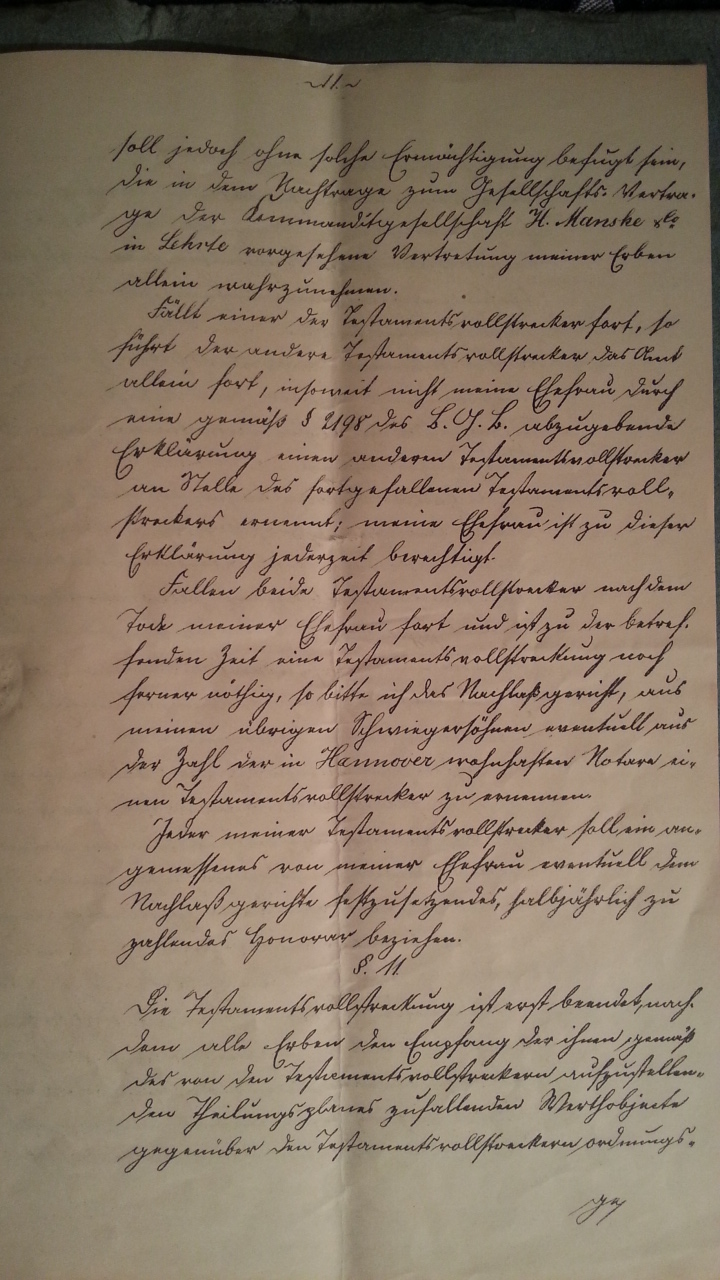 ~11.~
soll jedoch ohne solche Ermächtigung befugt sein,
die in dem Nachtrage zum Gesellschafts-Vertra-
ge der Kommanditgesellschaft H. Manske & Co
in Lehrte vorgesehene Vertretung meiner Erben
allein wahrzunehmen.
Fällt einer der Testamentsvollstrecker fort, so
führt der andere Testamentsvollstrecker das Amt
allein fort, insoweit nicht meine Ehefrau durch
eine gemäß § 2198 des B. G. B. abzugebende
Erklärung einen anderen Testamentsvollstrecker
an Stelle des fortgefallenen Testamentsvoll-
streckers ernennt; meine Ehefrau ist zu dieser
Erklärung jederzeit berechtigt.
Fallen beide Testamentsvollstrecker nach dem
Tode meiner Ehefrau fort und ist zu der betref-
fenden Zeit eine Testamentsvollstreckung noch
ferner nöthig, so bitte ich das Nachlaßgericht, aus
meinen übrigen Schwiegersöhnen eventuell aus
der Zahl der in Hannover wohnhaften Notare ei-
nen Testamentsvollstrecker zu ernennen.
Jeder meiner Testamentsvollstrecker soll ein an-
gemessenes von meiner Ehefrau eventuell dem
Nachlaßgerichte festzusetzendes, halbjährlich zu
zahlendes Honorar beziehen.
§. 11
Die Testamentsvollstreckung ist erst beendet, nach-
dem alle Erben den Empfang der ihnen gemäß
des von den Testamentsvollstreckern aufzustellen-
den Theilungsplanes zufallenden Werthobjecte
gegenüber den Testamentsvollstreckern ordnungs-
ge